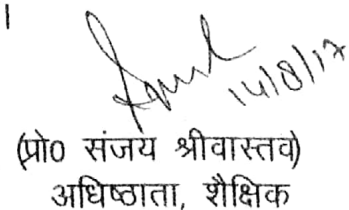 ।
14/8/17
(प्रो0 संजय श्रीवास्तव)
अधिष्ठाता, शैक्षिक